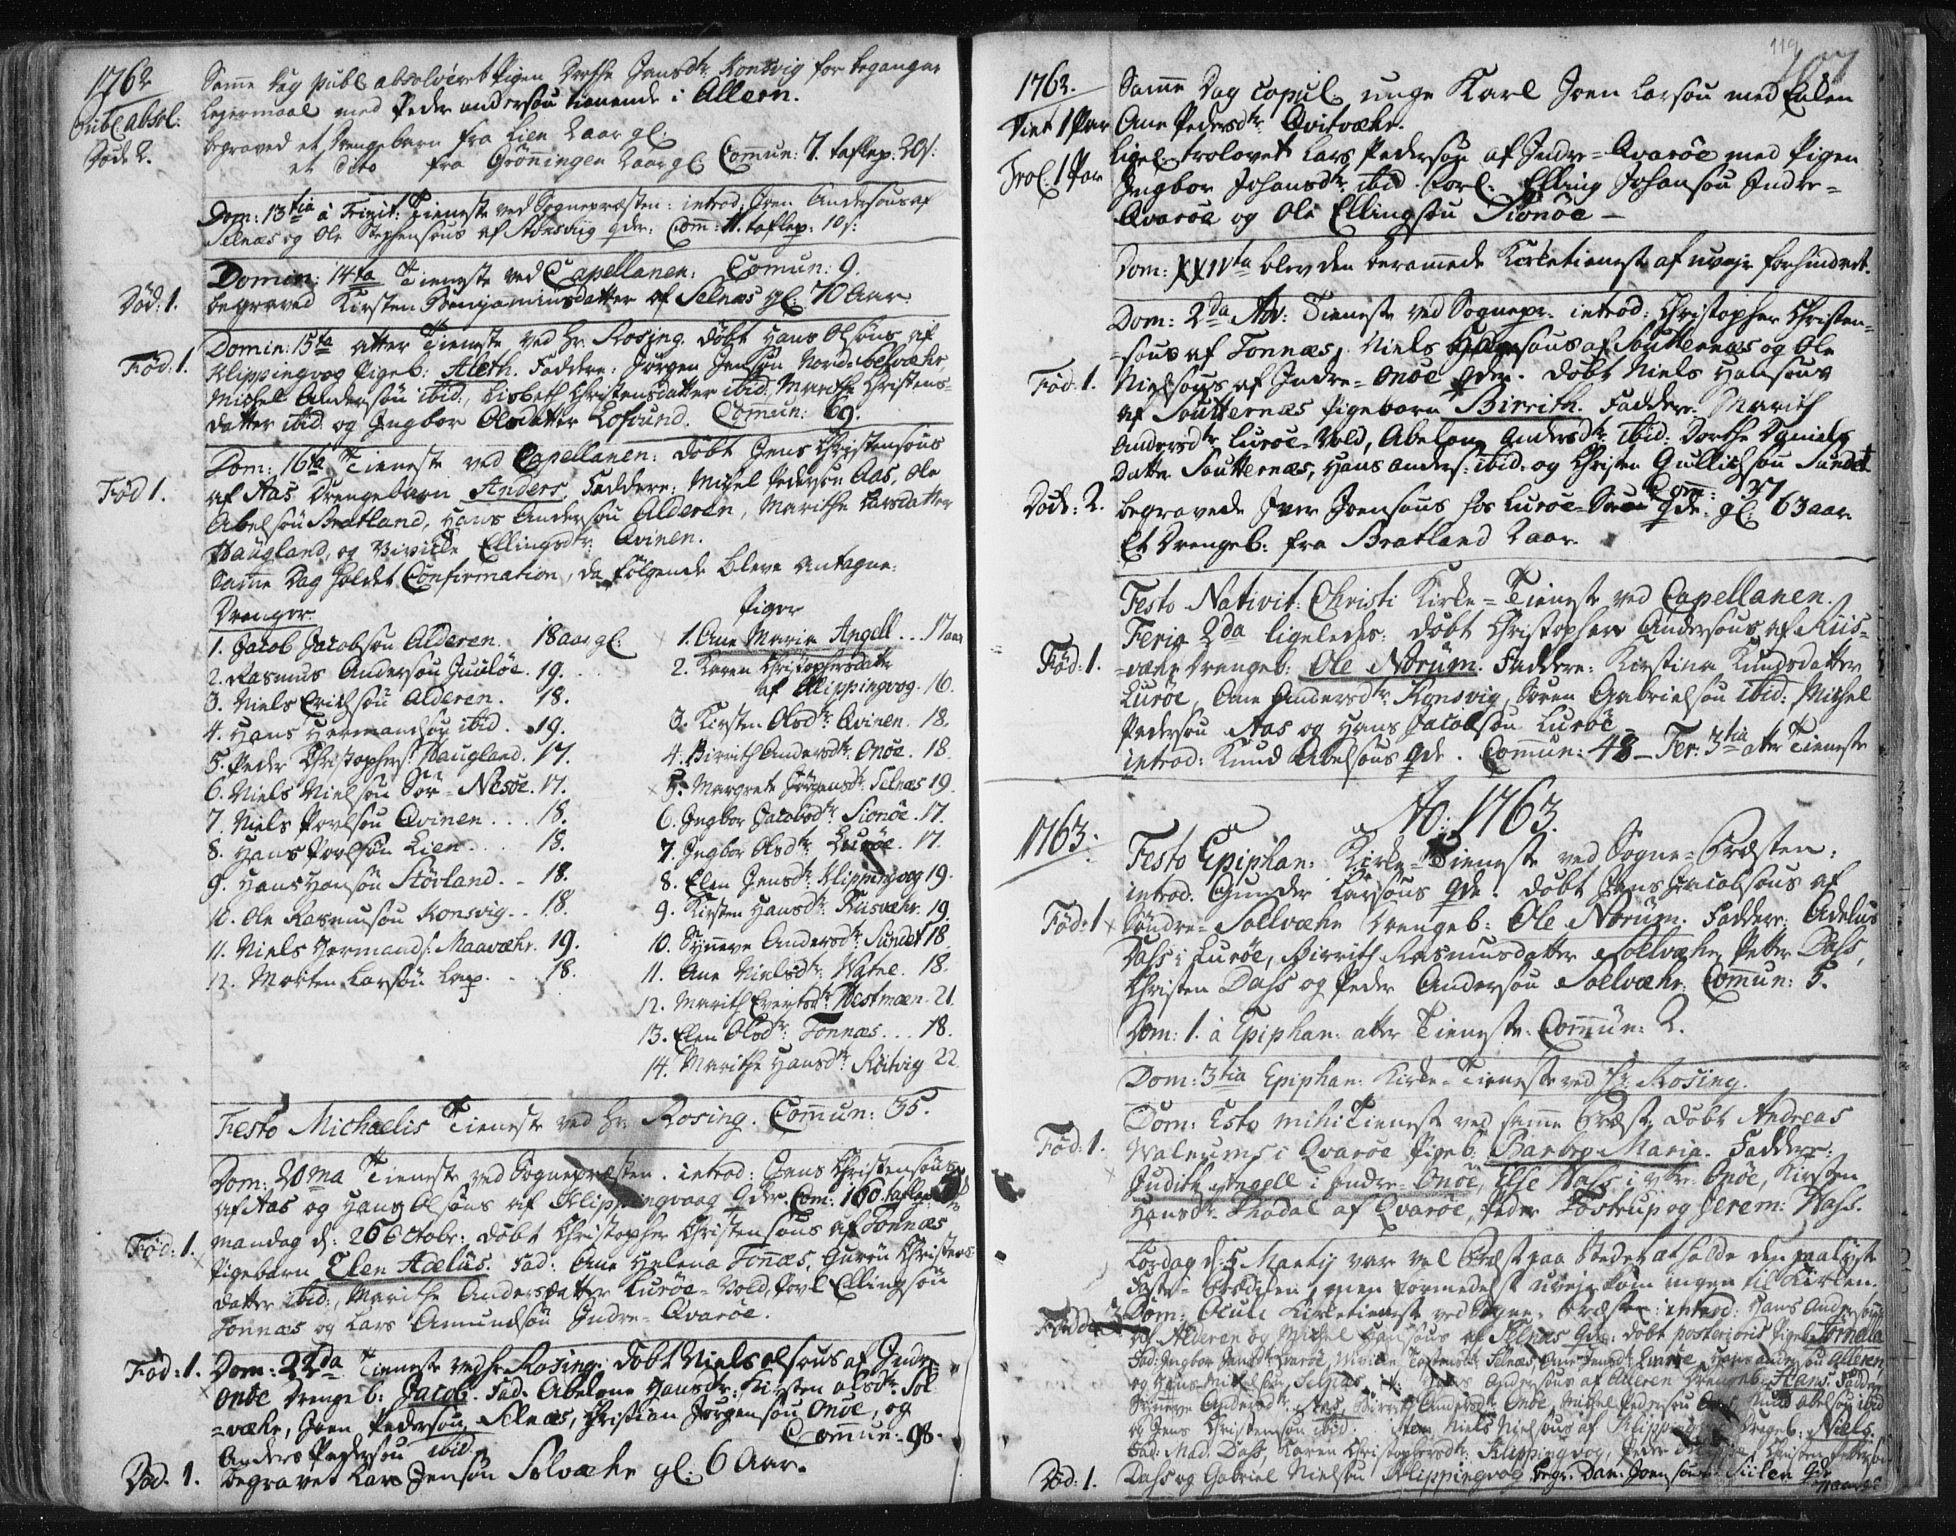 1762
Publ. absol:
Døde 2.
Samme dag publ absolveret Pigen Dorthe Jensdr. Konsvig for begangen
Lejermaal med Peder andersøn tienende i Alleren.
begraved et Drengebarn fra Lien 2 aar gl:
et dito fra Grønningen 2 aar gl: Com̅un: 7. taflep: 20 s:
Dom: 13tia à Trinit: Tieneste ved Sognepræsten: introd: Joen Andersøns af
Selnæs og Ole Stephensøns af Stoksviig qdr: Com̅: 11. taflep: 10 s:
Domin: 14ta Tieneste ved Capellanen: Comun: 9.
Død: 1. begraved Kirsten Benjaminsdatter af Selnæs gl: 70 Aar.
Domin: 15ta atter Tieneste ved hr. Rosing. døbt Hans Olsøns af
Fød: 1. Klippingvog Pigeb: Aleth. Faddere: Jørgen Jensøn Nord-Solvæhr,
Michel Andersøn ibid., Lisbeth Christensdatter ibid: Marithe Christens-
datter ibid og Ingbor Olsdatter Lofsund. Comun: 69.
Dom: 16ta Tieneste ved Capellanen: døbt Jens Christensøns
Fød 1. af Aas Drengebarn Anders. Faddere: Michel Pedersøn Aas, Ole
Abelsøn Bratland, Hans Andersøn Alderen, Marithe Larsdatter
Haugland, og Birithe Ellingsdr. Qvinen.
Samme Dag holdet Confirmation, da følgende bleve antagne:
Drenger. Piger
1. Jacob Jacobsøn Alderen. 18 aar gl:
2. Rasmus Andersøn Juuløe. 19.
3. Niels Erichsøn Alderen. 18.
4. Hans Hermandsøn ibid. 19.
5. Peder Christophers: Haugland. 17.
6. Niels Nielsøn Sør-Nesøe. 17.
7. Niels Povlsøn Qvinen... 18.
8. Hans Povlsøn Lien... 18.
9. Hans Hansøn Størland. - 18.
10. Ole Rasmusøn Konsvig.. 18.
11. Niels Hermands: Maavæhr. 19.
12. Morten Larsøn Lap. . . 18.
1. Ane Maria Angell.. 17 aar
2. Karen Christophersdatter
af Klippingvog. 16.
3. Kirsten Olsdr. Qvinen. 18.
4. Birrith Andersdr. Onøe. 18
5. Margrete Jørgensdr. Selnæs 19.
6. Ingbor Jacobsdr. Sionøe. 17.
7. Ingbor Olsdr. Lurøe. 17.
8. Elen Jensdr. Klippingvog 19.
9. Kirsten Hansdr. Riisvæhr. 19
10. Synneve Andersdr. Sundet 18.
11. Ane Nielsdr. Watne. 18.
12. Marith Evertsdr. Hestmæn. 21.
13. Elen Olsdr. Tonnæs... 18.
14. Marithe Hansdr. Reitvig 22.
Festo Michaelis Tieneste ved hr. Rosing. Com̅un: 35.
Dom: 20ma Tieneste ved Sognepræsten. introd: Jens Christensøns
af Aas og Hans Olsøns af Klippingvaag Qdr. Com: 160. taflep:
mandag d: 26 Octobr: døbt Christopher Christensøns af Tonnæs
Fød: 1. Pigebarn Elen Adelus. Fad: Ane Helena Tonæs, Guren Christens
datter ibid:, Marithe Andersdatter Lurøe-Vold, Povl Ellingsøn
Tonnæs og Lars Amundsøn Indre-Qvarøe.
Fød: 1. Dom: 22da Tieneste ved hr Rosing. døbt Niels Olsøns af Indre
Onøe Drengeb: Jacob. Fad: Abelone Hansdr: Kirsten Olsdr. Sol
=væhr, Joen Pedersøn Selnæs, Christian Jørgensøn Onøe, og
Anders Pedersøn ibid. Com̅un: 98.
Død: 1. begravet Lars Jensøn Solvæhr gl: 6 Aar.
119
1762. Sam̅e Dag copul. unge Karl Joen Larsøn med Enken
Viet 1 Par Ane Pedersdr. Qvitvæhr.
Trol. 1 Par ligel. trolovet Lars Pedersøn af Indre=Qvarøe med Pigen
Ingbor Johansdr. ibid. Forl: Elling Johansøn Indre=
Qvarøe og Ole Ellingsøn Sionøe -
Dom: XXIVta blev den beram̅ede Kirketieneste af uvejr forhindret.
Dom: 2da Adv: Tieneste ved Sognepr. introd: Christopher Christen=
=søns af Tonnæs, Niels Hansøns af Souternæs og Ole
Fød: 1. Nielsøns af Indre=Onøe qdr. døbt Niels Hansøns
af Soutternæs Pigebarn Birrith. Faddere Marith
Andersdr. Lurøe-Vold, Abelone Andersdr. ibid: Dorthe Daniels
Datter Soutternæs, Hans Anders: ibid. og Christen Gullichsøn Sundet.
Com̅: 37
Døde: 2. begravede Iver Joensøns fos Lurøe gl: 63 aar.
Et Drengeb: fra Bratland 2 aar.
Festo Nativit: Christi Kirke=Tieneste ved Capellanen.
Feria 2da ligeledes: døbt Christopher Andersøns af Riis=
Fød: 1. =væhr Drengeb: Ole Norum. Faddere: Kirstina Knudsdatter
Lurøe, Ane Andersdr. Konsvig, Søren Gabrielsøn ibid: Michel
Pedersøn Aas og Hans Jacobsøn Lurøe
introd: Knud Abelsøns qde. Com̅un: 48 - Fer: 3tia atter Tieneste
1763. Ao: 1763.
Festo Epiphan: Kirke=Tieneste ved Sogne=Præsten:
introd. Gunder Larsøns qde. døbt Jens Jacobsøns af
Fød: 1 Søndre=Sollvæhr Drengeb: Ole Norum. Faddere: Adelus
Dass i Lurøe, Birrith Rasmusdatter Sollvæhr, Petter Dass,
Christen Dass og Peder Andersøn Sollvæhr. Com̅un: 5.
Dom: 1. à Epiphan: atter Tieneste. Com̅un: 2.
Dom: 3tia Epiphan: Kirke-Tieneste ved Hr. Rosing.
Dom: Esto mihi Tieneste ved sam̅e Præst, døbt Andreas
Fød: 1. Walnums i Qvarøe Pigeb: Barbro Maria. Faddere:
Judith Angell i Indre-Onøe, Else Dass i ytre-Onøe, Kirsten
Hansdr. Skadal af Qvarøe, Peder Tostrup og Jerem: Dass.
Lørdag d: 5 Martij var vel Præst paa Stedet at holde den paalyste
Faste-Prædiken, men formedelst uvejr kom ingen til Kirken.
Fødde 3 Dom: Oculi Kirketieneste ved Sogne-Præsten: introd: Hans Andersøns
af Alderen og Michel Hansøns af Selnæs qdr: døbt posterioris Pigeb: Pernella
Fad: Ingbor Jensdr. Lurøe, Selnæs, Ane Jensdr. Lurøe, Hans Andersøn Alleren,
og Hans Michelsøn Selnæs. It: Hans Andersøns af Alleren Drengeb: Hans. Fadder
Synneve Andersdr. Aas, Birrith Andersdr. Onøe, Michel Pedersøn Aas, Knud Abelsøn ibid
og Jens Christensøn ibid. Item Niels Nielsøns af Klippingvog Drengeb: Niels.
Fad: Mad. Dass, Karen Christophersdr. Klippingvog, Peder
Død: 1. Dass og Gabriel Nielsøn Klippingvog. begr. Dan: Joensøns Siilen Qde